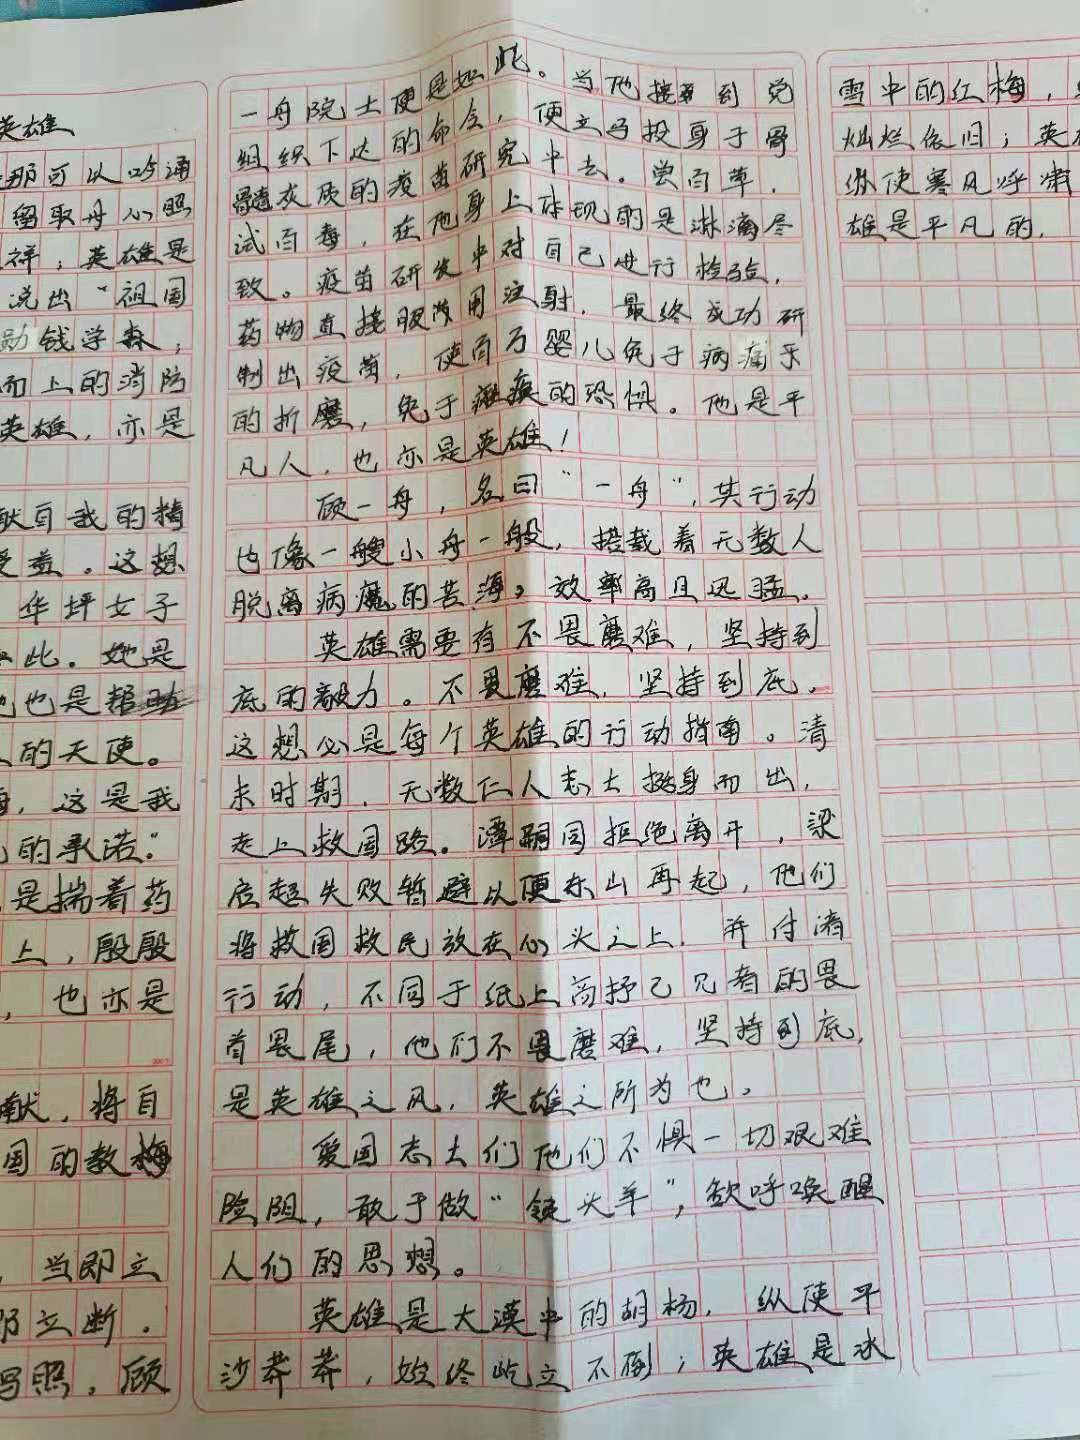 英雄
那可以吟诵
留取丹心照
祥；英雄是
说出“祖国
勋钱学森，
而上的消防
英雄，亦是
献自我的精
受益。这想
华坪女子
此。她是
也是帮助
的天使。
，这是我
的承诺.”
是揣着药
上，殷殷
，也亦是
献，将自
国的教梅
，当即立
即立断.
写照，顾
一舟院士便是如此。当他接到党
组织下达的命令，便立马投身于骨
髓灰质的疫苗研究中去。尝百草，
试百毒，在他身上体现的是淋漓尽
致。疫苗研发中对自己进行检验，
药物直接服用注射，最终成功研
制出疫苗，使百万婴儿免于病痛
的折磨，免于瘫痪的恐惧。他是平
凡人，也亦是英雄！
顾一舟，名曰“一舟”，其行动
也像一艘小舟一般，搭载着无数人
脱离病魔的苦海，效率高且迅猛.
英雄需要有不畏磨难，坚持到
底的毅力。不畏磨难，坚持到底，
这想必是每个英雄的行动指南。清
末时期，无数仁人志士挺身而出，
走上救国路。谭嗣同拒绝离开，梁
启超失败暂避以便东山再起，他们
将救国救民放在心头之上，并付诸
行动，不同于纸上高抒己见者的畏
首畏尾，他们不畏磨难，坚持到底，
是英雄之风，英雄之所为也。
爱国志士们他们不惧一切艰难
险阻，敢于做“领头羊”，欲呼唤醒
人们的思想。
英雄是大漠中的胡杨，纵使平
沙莽莽，始终屹立不倒；英雄是冰
雪中的红梅，
灿烂依旧；英
纵使寒风呼啸
雄是平凡的，